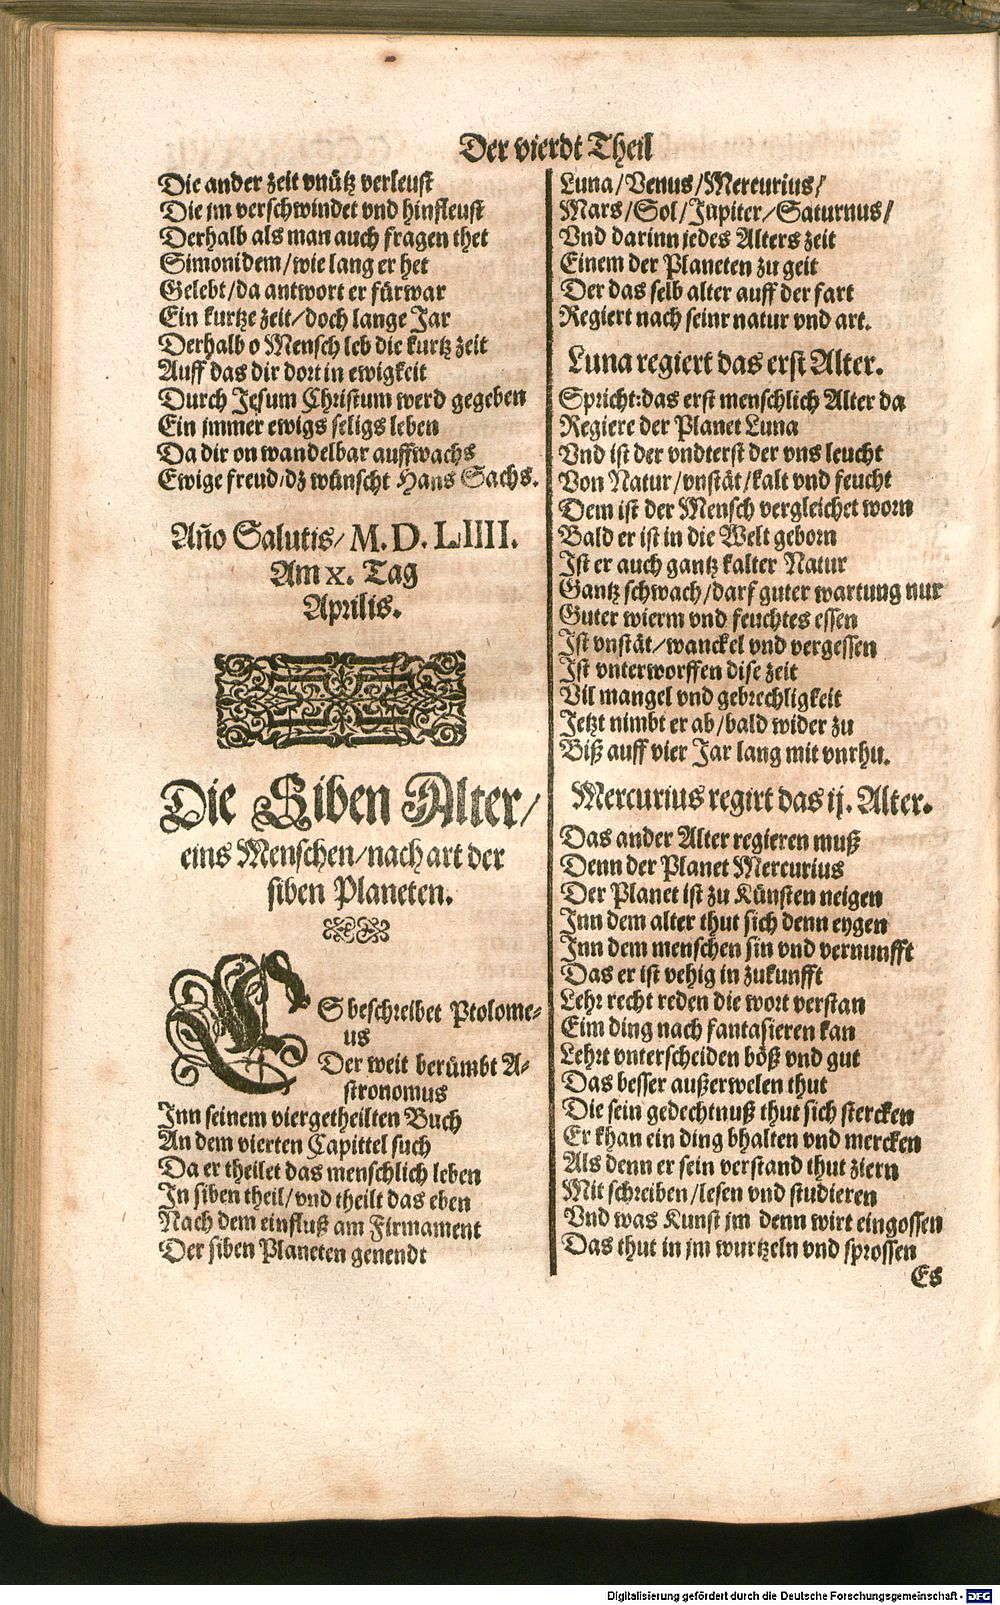 Der vierdt Theil
Die ander zeit vnütz verleust
Die jm verschwindet vnd hinfleust
Derhalb als man auch fragen thet
Simonidem/wie lang er het
Gelebt/da antwort er fürwar
Ein kurtze zeit/doch lange Jar
Derhalb o Mensch leb die kurtz zeit
Auff das dir dort in ewigkeit
Durch Jesum Christum werd gegeben
Ein jmmer ewigs seligs leben
Da dir on wandelbar auffwachs
Ewige freud/dz wünscht Hans Sachs.
Año Salutis/ M. D. LIIII.
Am x. Tag
Aprilis.
Die Siben Alter/
eins Menschen/nach art der
siben Planeten.
ES beschreibet Ptolome-
us
Der weit berümbt A-
stronomus
Inn seinem viergetheilten Buch
An dem vierten Capittel such
Da er theilet das menschlich leben
In siben theil/vnd theilt das eben
Nach dem einfluß am Firmament
Der siben Planeten genendt
Luna/Venus/Mercurius/
Mars/Sol/Jupiter/Saturnus/
Vnd darinn jedes Alters zeit
Einem der Planeten zu geit
Der das selb alter auff der fart
Regiert nach seinr natur vnd art.
Luna regiert das erst Alter.
Spricht:das erst menschlich Alter da
Regiere der Planet Luna
Vnd ist der vndterst der vns leucht
Von Natur/vnstät/kalt vnd feucht
Dem ist der Mensch vergleichet worn
Bald er ist in die Welt geborn
Ist er auch gantz kalter Natur
Gantz schwach/darf guter wartung nur
Guter wierm vnd feuchtes essen
Ist vnstät/wanckel vnd vergessen
Ist vnterworffen dise zeit
Vil mangel vnd gebrechligkeit
Jetzt nimbt er ab/bald wider zu
Biß auff vier Jar lang mit vnrhu.
Mercurius regirt das ij. Alter.
Das ander Alter regieren muß
Denn der Planet Mercurius
Der Planet ist zu Künsten neigen
Inn dem alter thut sich denn eygen
Inn dem menschen sin vnd vernunfft
Das er ist vehig in zukunfft
Lehr recht reden die wort verstan
Eim ding nach fantasieren kan
Lehrt vnterscheiden böß vnd gut
Das besser außerwelen thut
Die sein gedechtnuß thut sich stercken
Er khan ein ding bhalten vnd mercken
Als denn er sein verstand thut ziern
Mit schreiben/lesen vnd studieren
Vnd was Kunst jm denn wirt eingossen
Das thut in jm wurtzeln vnd sprossen
Es
Digitalisierung gefördert durch die Deutsche Forschungsgemeinschaft - DFG